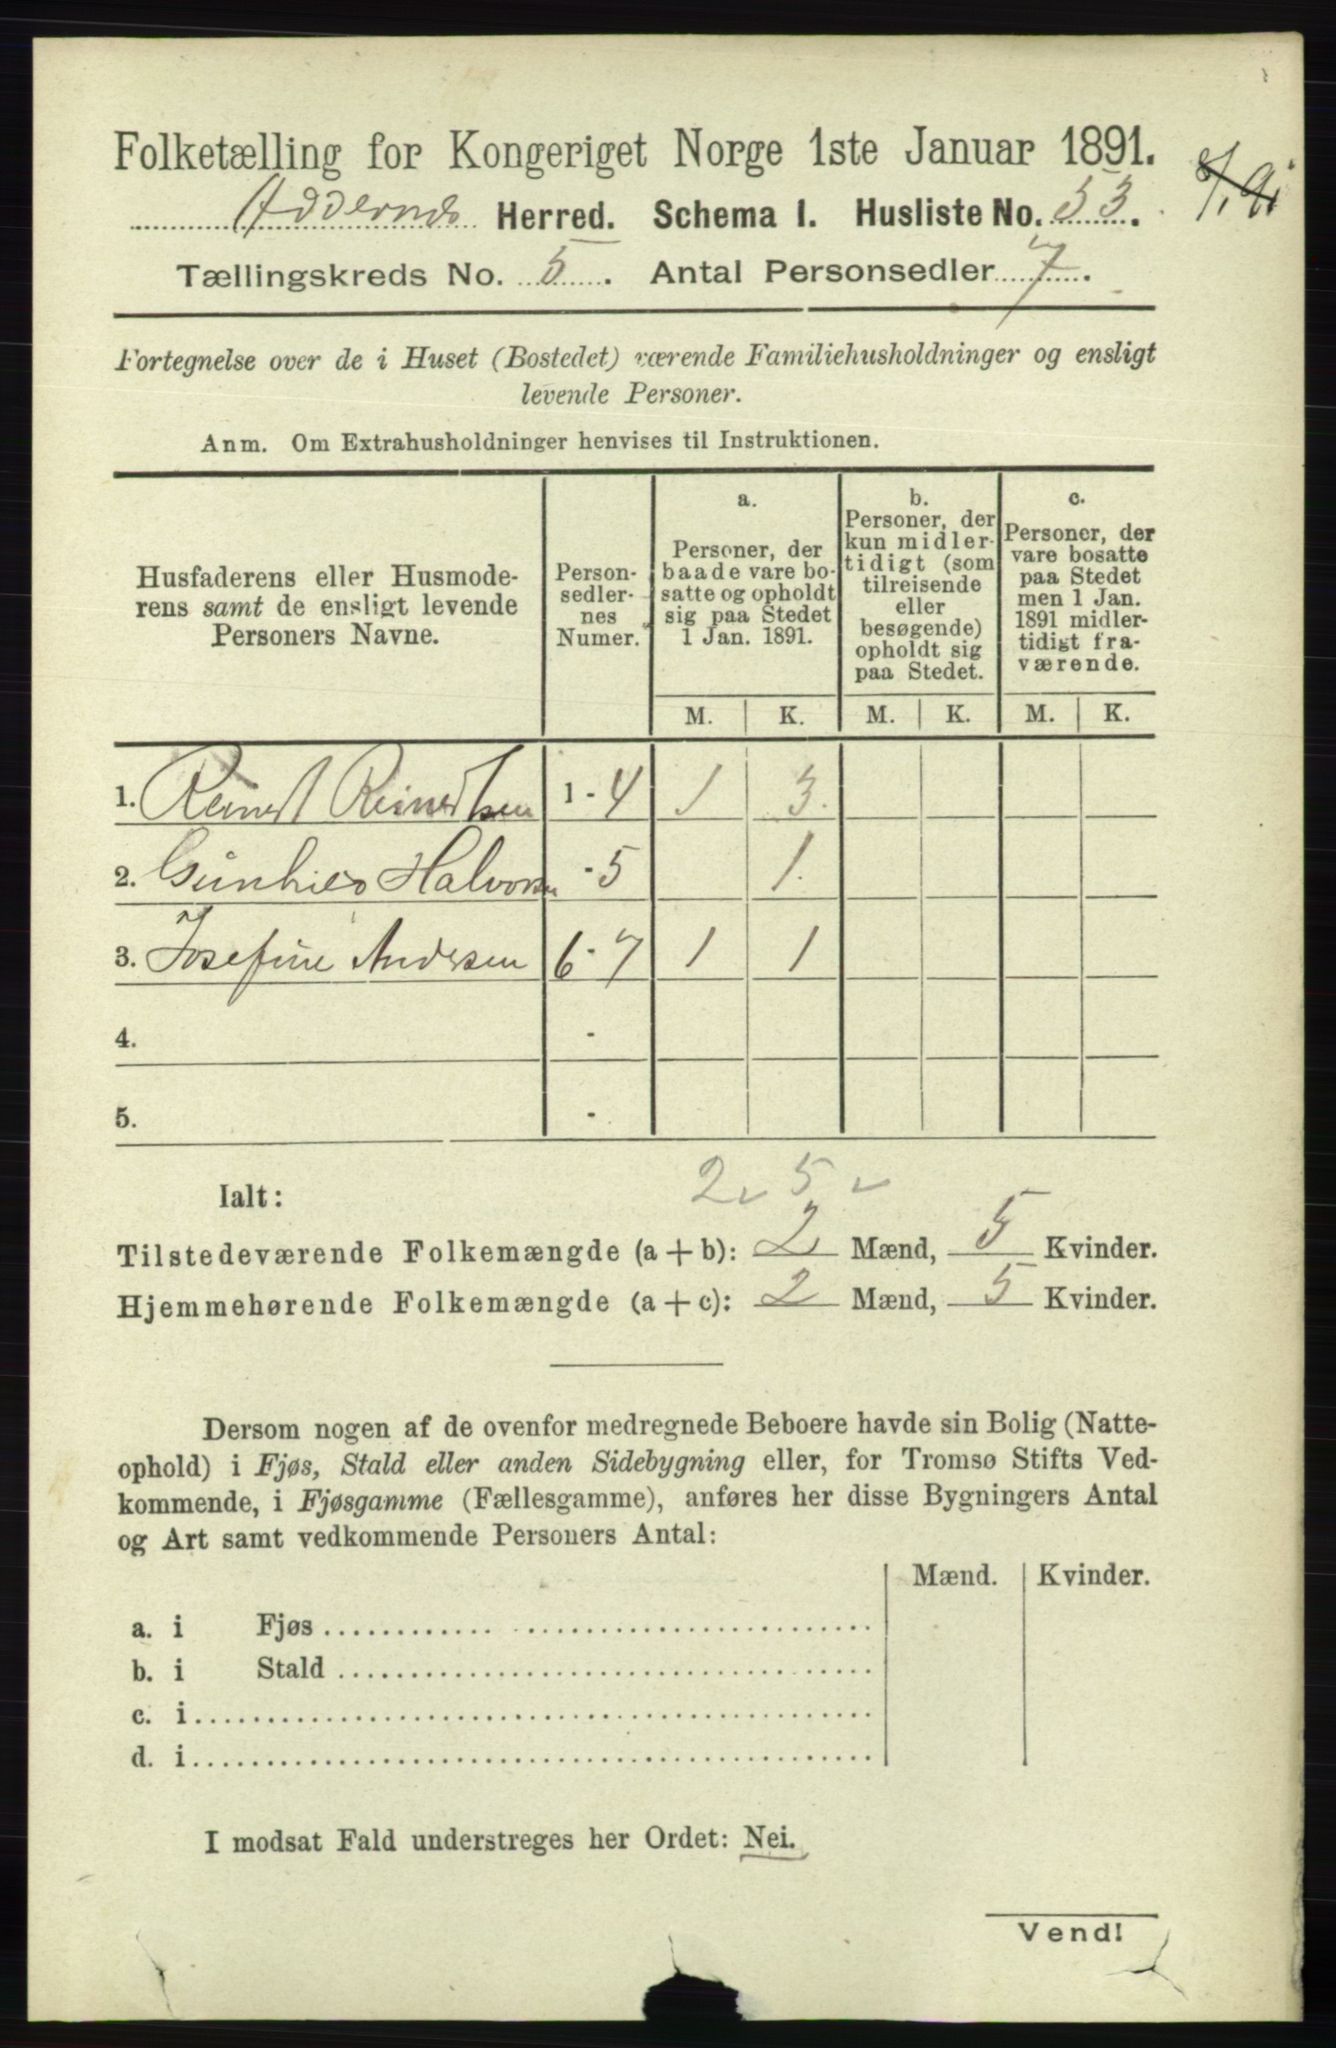 Folketælling for Kongeriget Norge 1ste Januar 1891.
Oddernes Herred. Schema I. Husliste No. 53.
Tællingskreds No. 5. Antal Personsedler 7.
Fortegnelse over de i Huset (Bostedet) værende Familiehusholdninger og ensligt
levende Personer.
Anm. Om Extrahusholdninger henvises til Instruktionen.
Husfaderens eller Husmode-
rens samt de ensligt levende
Personers Navne.
Person-
sedler-
nes
Numer.
a.
Personer, der
baade vare bo-
satte og opholdt
sig paa Stedet
1 Jan. 1891.
b.
Personer, der
kun midler-
tidigt (som
tilreisende
eller
besøgende)
opholdt sig
paa Stedet.
c.
Personer, der
vare bosatte
paa Stedet
men 1 Jan.
1891 midler-
tidigt fra-
værende.
M. K. M. K. M. K.
1. Reinert Reinertsen 1 - 4 1 3.
2. Gunhild Halvorsen - 5 1.
3. Josefine Andersen 6 - 7 1 1
4. -
5. -
2 5
Ialt:
Tilstedeværende Folkemængde (a + b): 2 Mænd, 5 Kvinder.
Hjemmehørende Folkemængde (a + c): 2 Mænd, 5 Kvinder.
Dersom nogen af de ovenfor medregnede Beboere havde sin Bolig (Natte-
ophold) i Fjøs, Stald eller anden Sidebygning eller, for Tromsø Stifts Ved-
kommende, i Fjøsgamme (Fællesgamme), anføres her disse Bygningers Antal
og Art samt vedkommende Personers Antal:
Mænd. Kvinder.
a. i Fjøs
b. i Stald
c. i
d. i
I modsat Fald understreges her Ordet: Nei.
Vend!